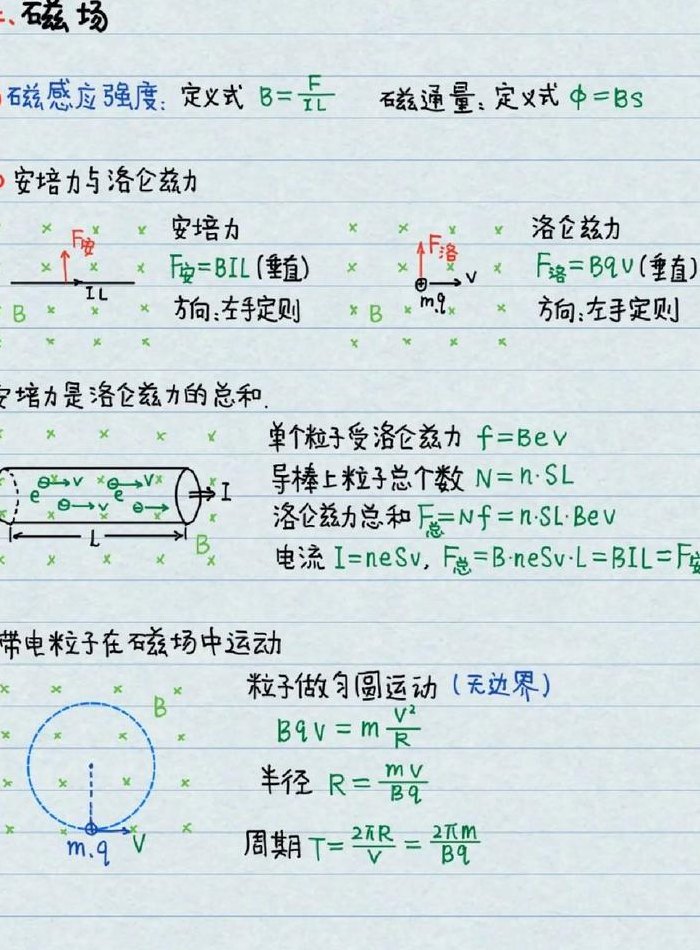 、磁场
磁感应强度: 定义式 B=F/IL 磁通量: 定义式 φ=BS
安培力与洛仑兹力
F安 安培力 F洛 洛仑兹力
F安=BIL(垂直) F洛=Bqv(垂直)
IL v
B 方向:左手定则 m.q B 方向:左手定则
安培力是洛仑兹力的总和.
单个粒子受洛仑兹力 f=Bev
导棒上粒子总个数 N=n·SL
v v e e v I
洛仑兹力总和 F总=Nf=n·SL·Bev
L B
电流 I=neSv, F总=B·neSv·L=BIL=F安
带电粒子在磁场中运动
粒子做匀圆运动(无边界)
B Bqv=m v²/R
半径 R=mv/Bq
m.q V 周期 T=2πR/V=2πm/Bq